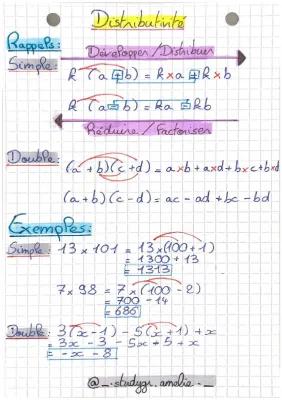 Distributivité
Rappels:
Développer / Distribuer
Simple:
k (a + b) = k × a + k × b
k (a - b) = ka - kb
Réduire / Factoriser
Double:
(a + b)(c + d) = a×b + a×d + b×c + b×d
(a + b)(c - d) = ac - ad + bc - bd
Exemples:
Simple: 13 × 101 = 13 × (100 + 1)
= 1300 + 13
= 1313
7 × 98 = 7 × (100 - 2)
= 700 - 14
= 686
Double: 3(x - 1) - 5(x + 1) + x
= 3x - 3 - 5x + 5 + x
= -x - 8
@_.studygr.amelie._